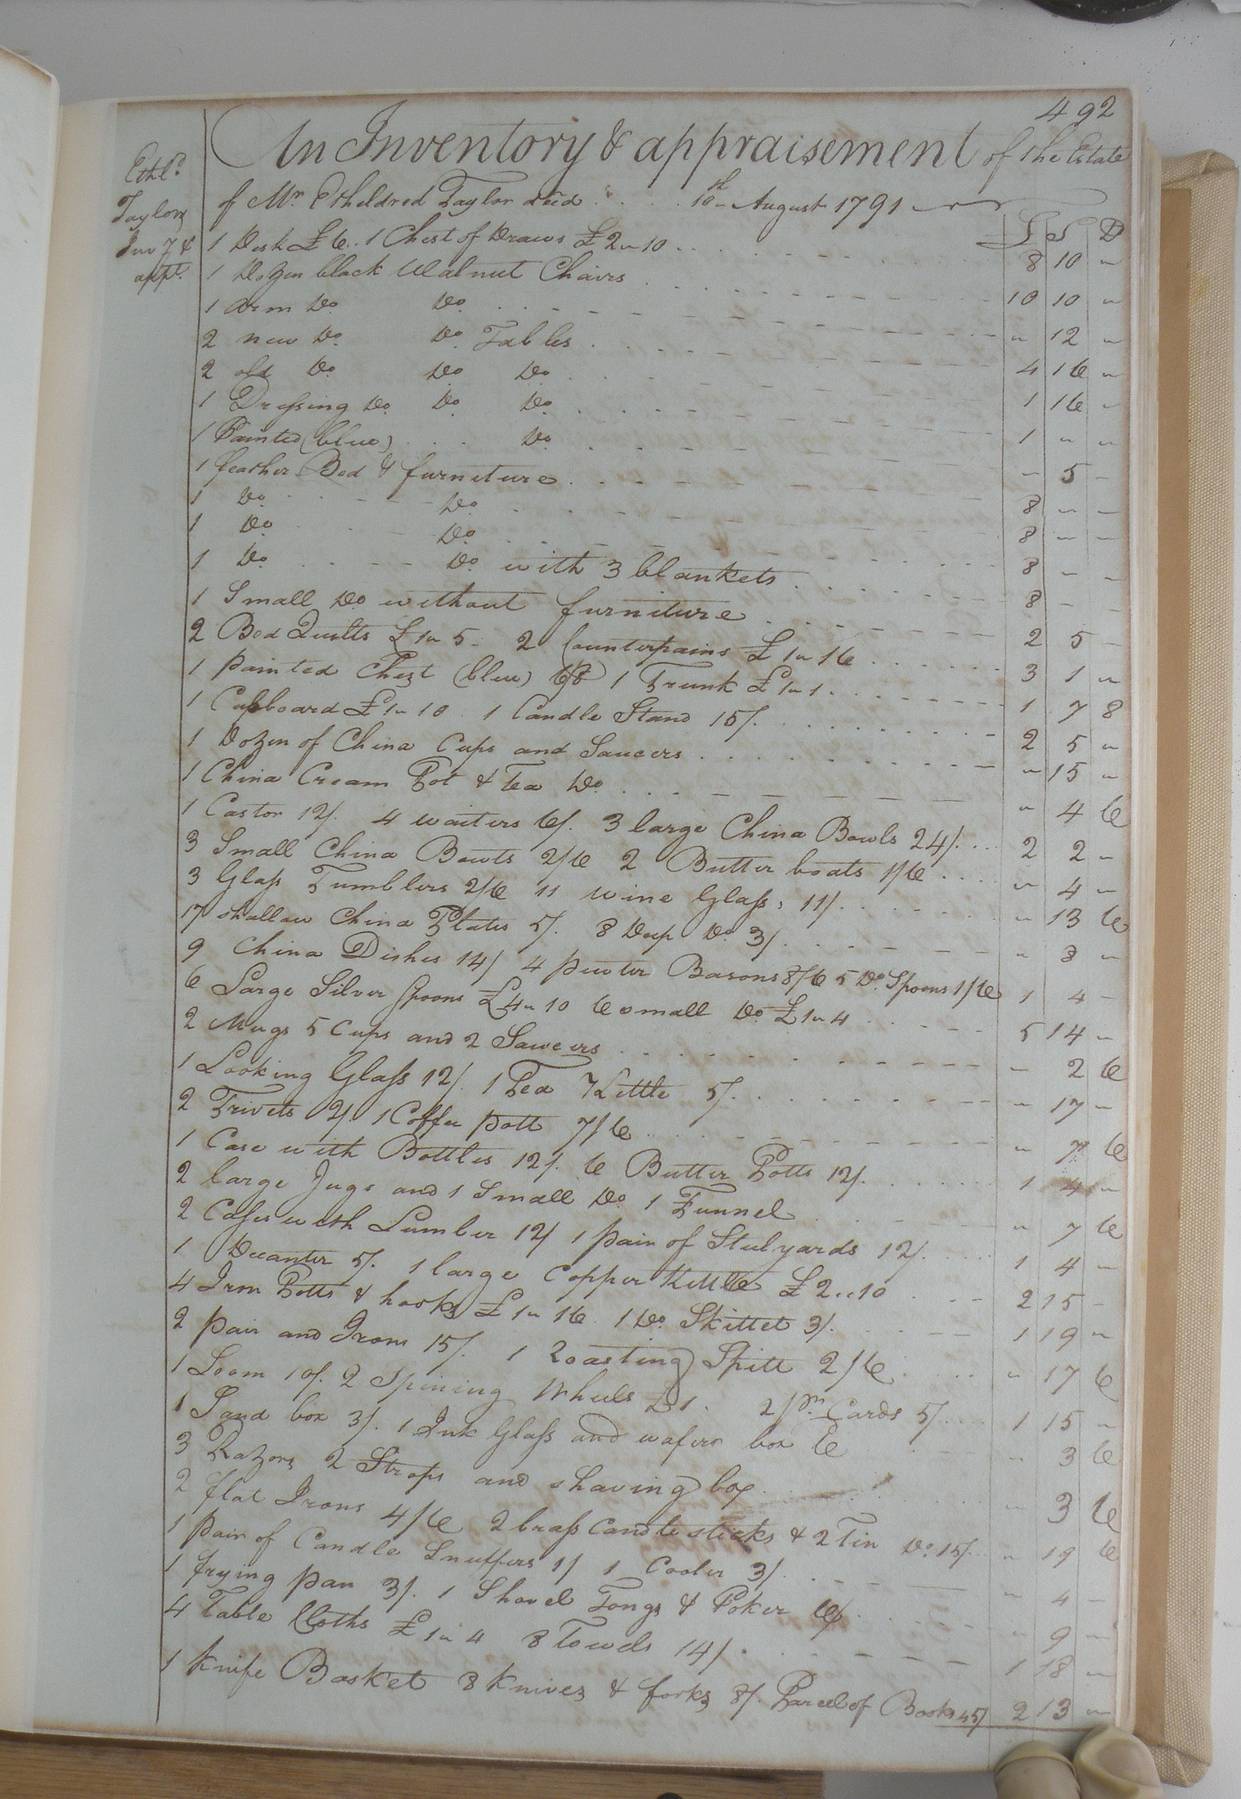 492
An Inventory & appraisement of the Estate
Ethld.
Taylors
Invy &
appt.
of Mr. Etheldred Taylor decd. . . . 10th August 1791
£ S D
1 Desk £6.. 1 Chest of Draws £2 " 10 . . . 8 10 "
1 Dozen black Walnut Chairs 10 10 "
1 arm Do. Do. " 12 "
2 new Do. Do. Tables 4 16 "
2 old Do. Do. Do. 1 16 "
1 Dressing Do. Do. Do. 1 " "
1 Painted (blue) Do. " 5 "
1 feather Bed & furniture 8 " "
1 Do. Do. 8 " "
1 Do. Do. 8 " "
1 Do. Do. with 3 blankets 8 " "
1 Small Do. without furniture 2 5 "
2 Bed Quilts £1 " 5 " 2 Counterpains £1 " 16 3 1 "
1 painted Chest (blue) 6/8 1 Trunk £1 " 1 1 7 8
1 Cupboard £1 " 10 1 Candle Stand 15/. 2 5 "
1 Dozen of China Cups and Saucers " 15 "
1 China Cream Pot & Tea Do. " 4 6
1 Castor 12/. 4 waiters 6/. 3 large China Bowls 24/. 2 2 "
3 Small China Bowls 2/6 2 Butter boats 1/6 " 4 "
3 Glass Tumblers 2/6 11 wine Glass, 11/. " 13 6
17 shallow China Plates 5/. 8 Deep Do. 3/. " 8 "
9 China Dishes 14/ 4 pewter Basons 8/6 5 Do. Spoons 1/6 1 4 "
6 Large Silver Spoons £4 " 10 6 small Do. £1 " 4 5 14 "
2 Mugs 5 Cups and 2 Sawcers " 2 6
1 Looking Glass 12/. 1 Tea Kettle 5/. " 17 "
2 Trivets 2/. 1 Coffee pott 7/6 " 7 6
1 Case with Bottles 12/. 6 Butter Potts 12/. 1 4 "
2 large Jugs and 1 Small Do. 1 Funnel " 7 6
2 Cases with Lumber 12/ 1 pair of Steelyards 12/. 1 4 "
1 Decanter 5/. 1 large Copper Kettle £2..10 2 15 "
4 Iron Potts & hooks £1 " 16 1 Do. Skittet 3/. 1 19 "
2 pair and Irons 15/. 1 Roasting Spitt 2/6 " 17 6
1 Loom 10/. 2 Spining Wheels £1. 2 pr. Cards 5/. 1 15 "
1 Sand box 3/. 1 Ink Glass and wafers box 6 " 3 6
3 Razors 2 Strops and shaving box " 3 6
2 flat Irons 4/6 2 brass Candlesticks & 2 Tin Do. 15/. " 19 6
1 pair of Candle Snuffers 1/ 1 Cooler 3/. " 4 "
1 frying pan 3/. 1 Shovel Tongs & Poker 6/ " 9 "
4 Table Cloths £1 " 4 8 Towels 14/. 1 18 "
1 Knife Basket 8 Knives & forks 8/. Parcel of Books 45/ 2 13 "